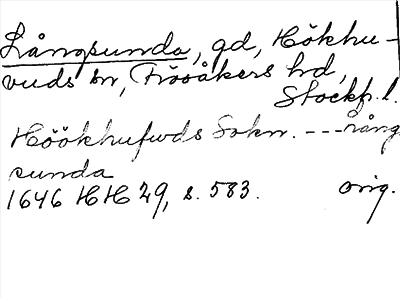 Långsunda, gd, Hökhu-
vuds sn, Frösåkers hd,
Stockh. l.
Höökhufwds Sokn. --- Lång
sunda
1646 HH 29, s. 583. orig.